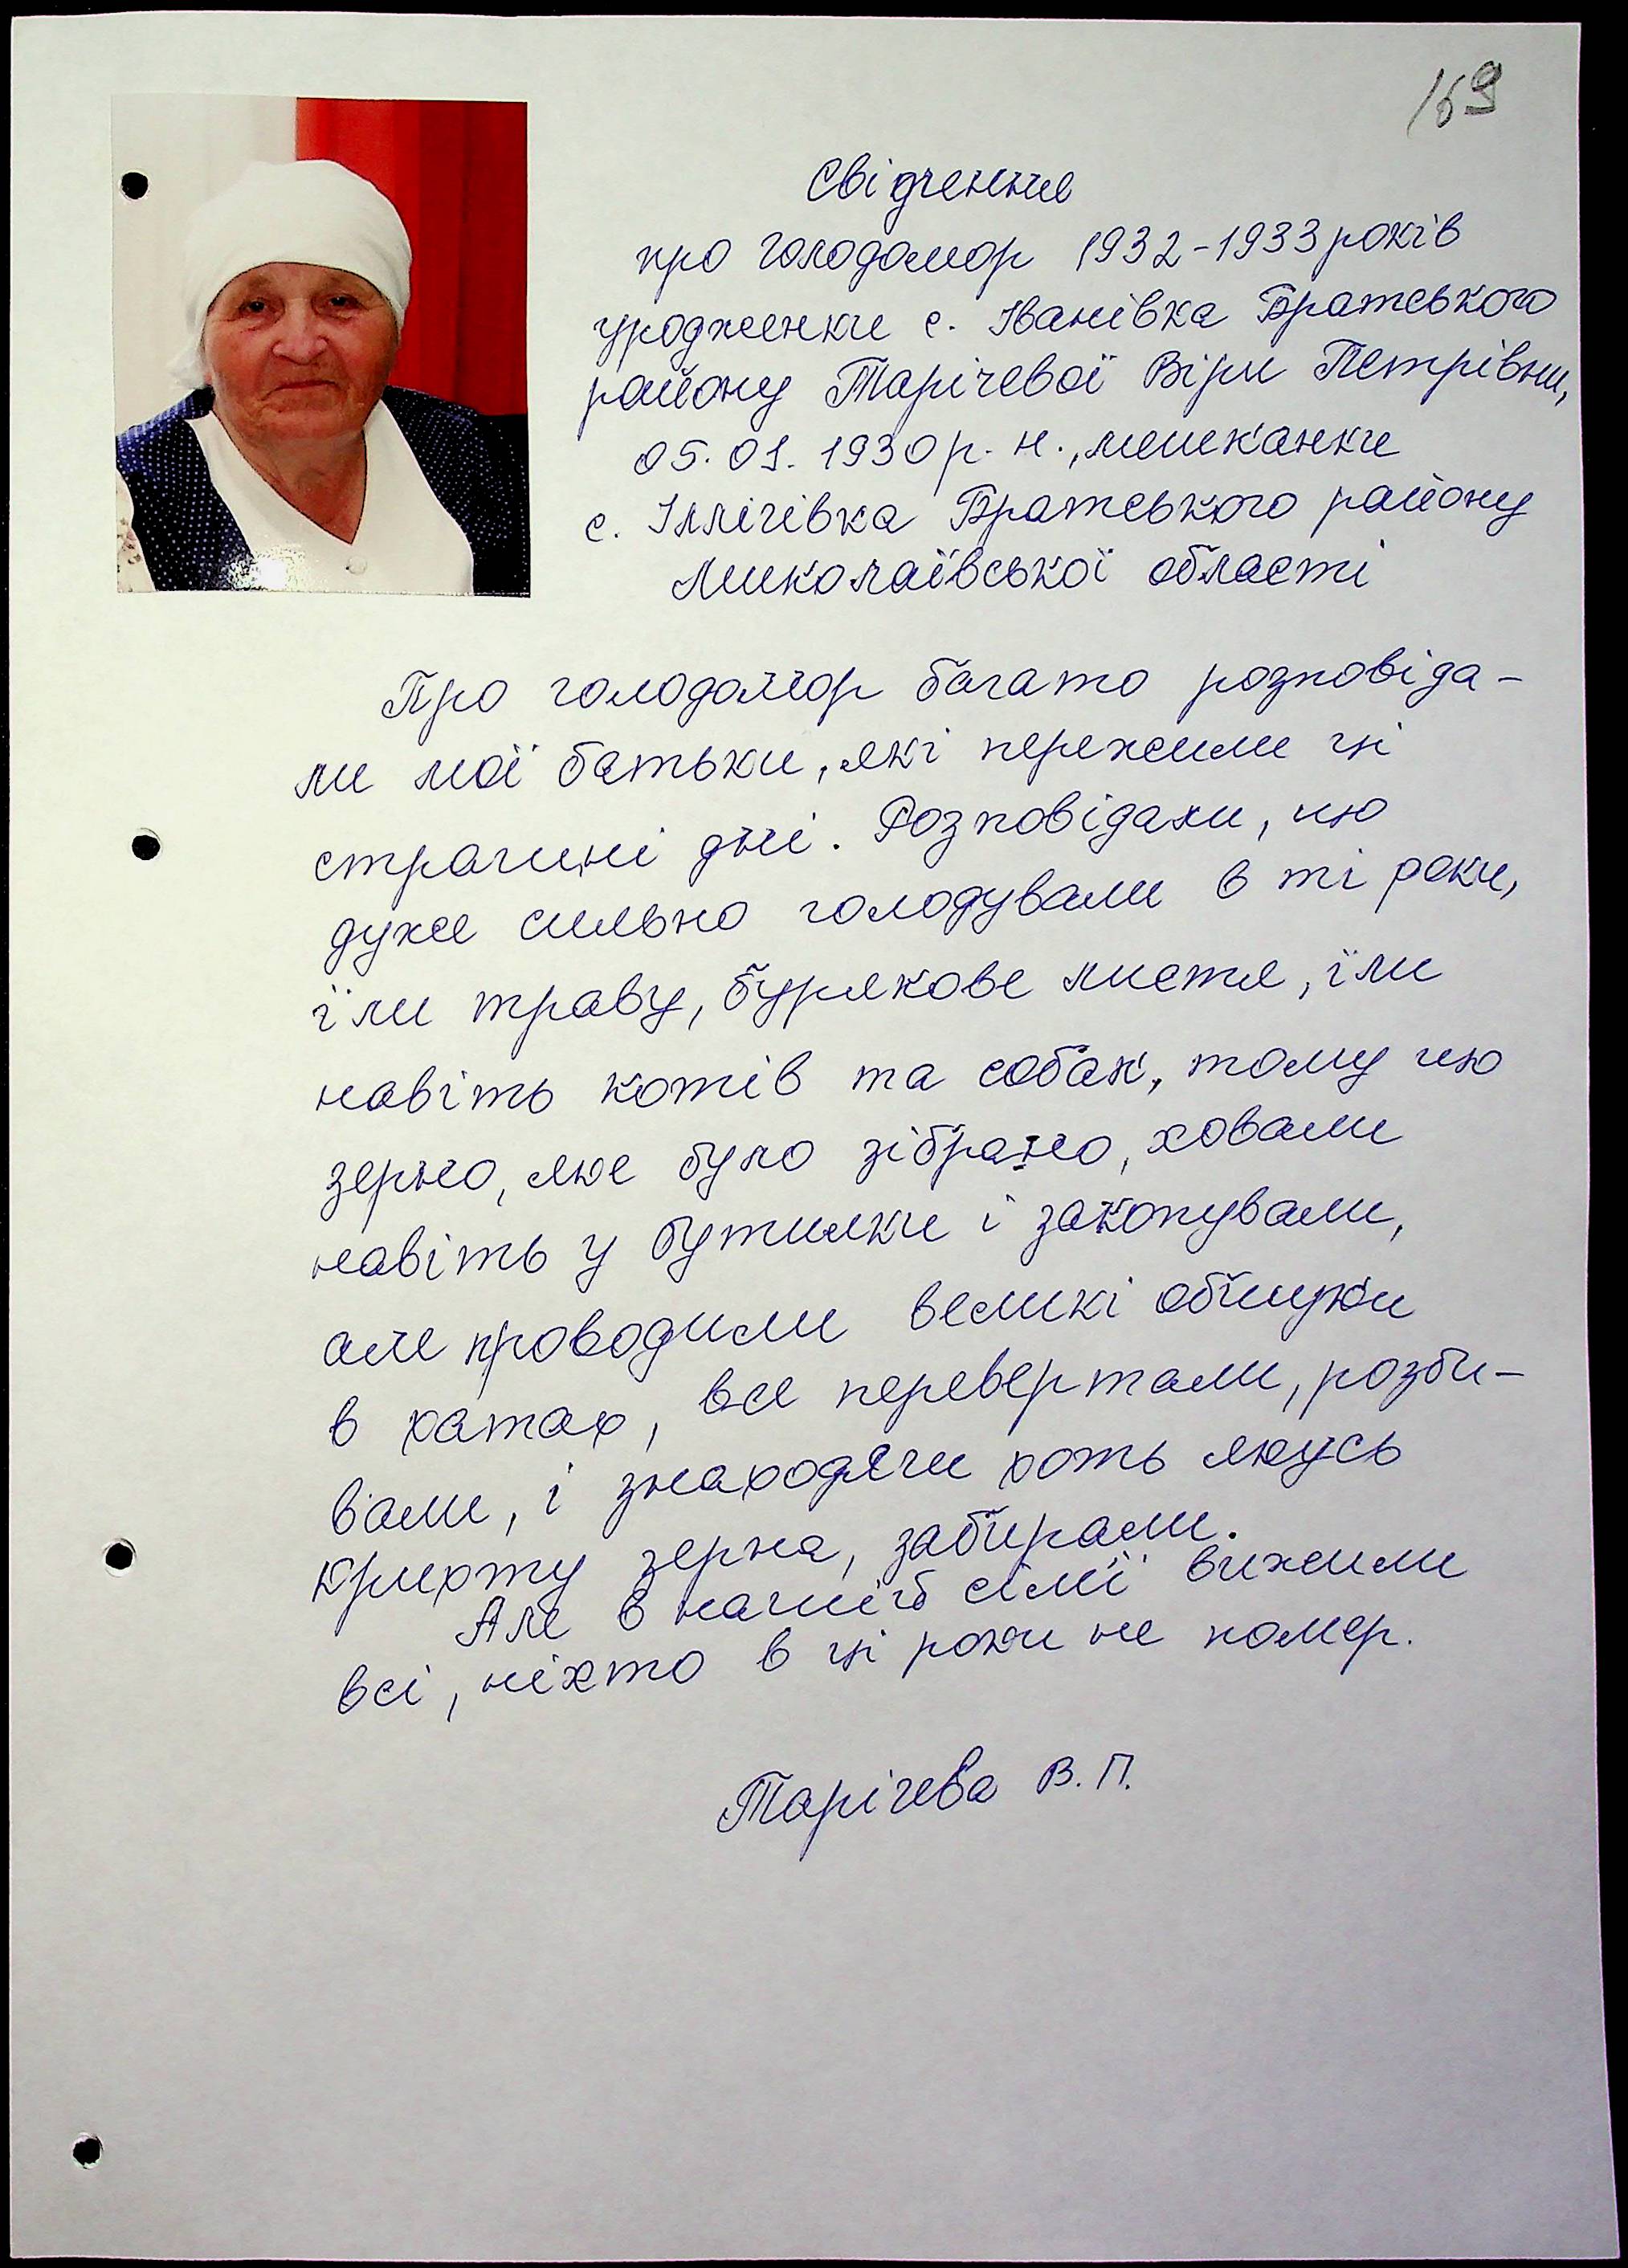 169
Свідчення
про голодомор 1932-1933 років
уродженки с. Іванівка Братського
району Тарічевої Віри Петрівни,
05.01.1930 р. н., мешканки
с. Іллічівка Братського району
Миколаївської області
Про голодомор багато розповіда-
ли мої батьки, які пережили ці
страшні дні. Розповідали, що
дуже сильно голодували в ті роки,
їли траву, бурякове листя, їли
навіть котів та собак, тому що
зерно, яке було зібрано, ховали
навіть у бутилки і закопували,
але проводили великі обшуки
в хатах, все перевертали, розби-
вали, і знаходячи хоть якусь
крихту зерна, забирали.
Але в нашій сімї вижили
всі, ніхто в ці роки не помер.
Тарічева В. П.